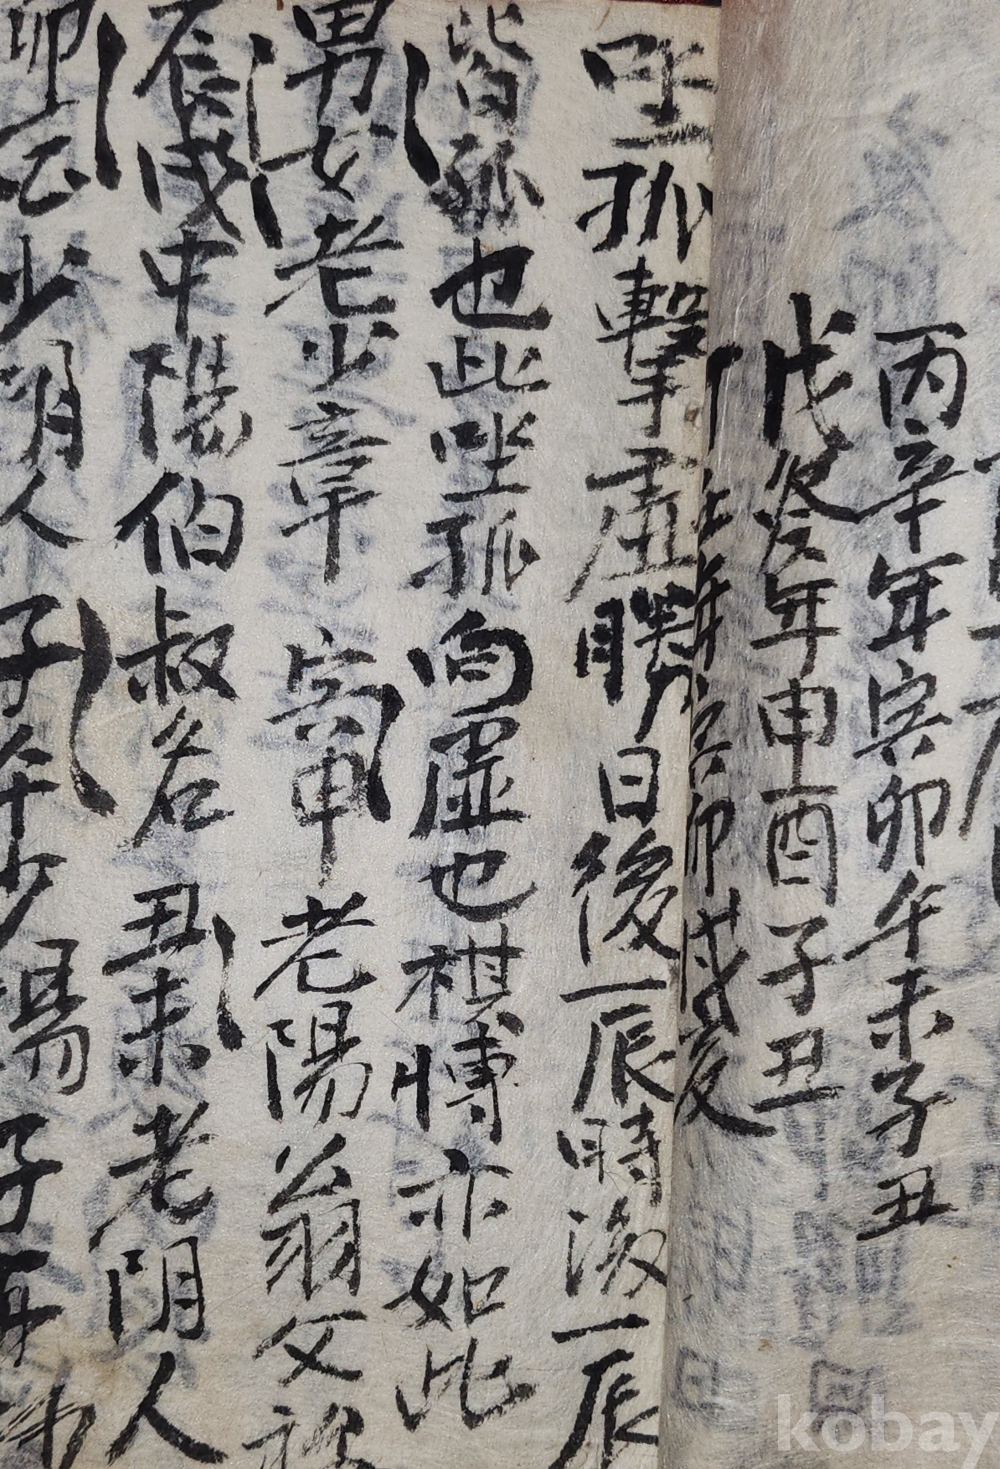 丙辛年寅卯午未子丑
戊癸年申酉子丑
寅卯戌亥
坐孤擊虛勝日後一辰時後一辰
皆孤也此坐孤向虛也祺博亦如此
男女老少章 寅申老陽翁父
辰戌中陽伯叔名 丑未老陰人
卯酉少陰人 子午少陽子
kobay